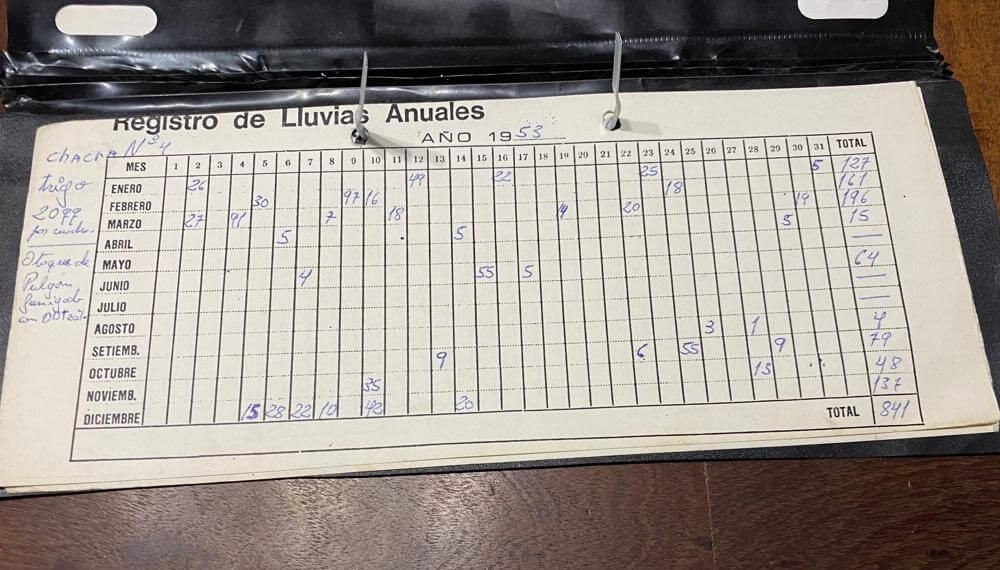 Registro de Lluvias Anuales
AÑO 1953
chacra Nº 4
trigo
20 qq
por cuadra.
Ataque de
Pulgón
fumigado
con
MES 1 2 3 4 5 6 7 8 9 10 11 12 13 14 15 16 17 18 19 20 21 22 23 24 25 26 27 28 29 30 31 TOTAL
ENERO 26 49 22 25 5 127
FEBRERO 30 97 16 18 161
MARZO 27 91 7 18 14 20 19 196
ABRIL 5 5 5 15
MAYO —
JUNIO 4 55 5 64
JULIO —
AGOSTO —
SETIEMB. 3 1 4
OCTUBRE 9 6 55 9 79
NOVIEMB. 35 13 48
DICIEMBRE 15 28 22 10 42 20 137
TOTAL 841